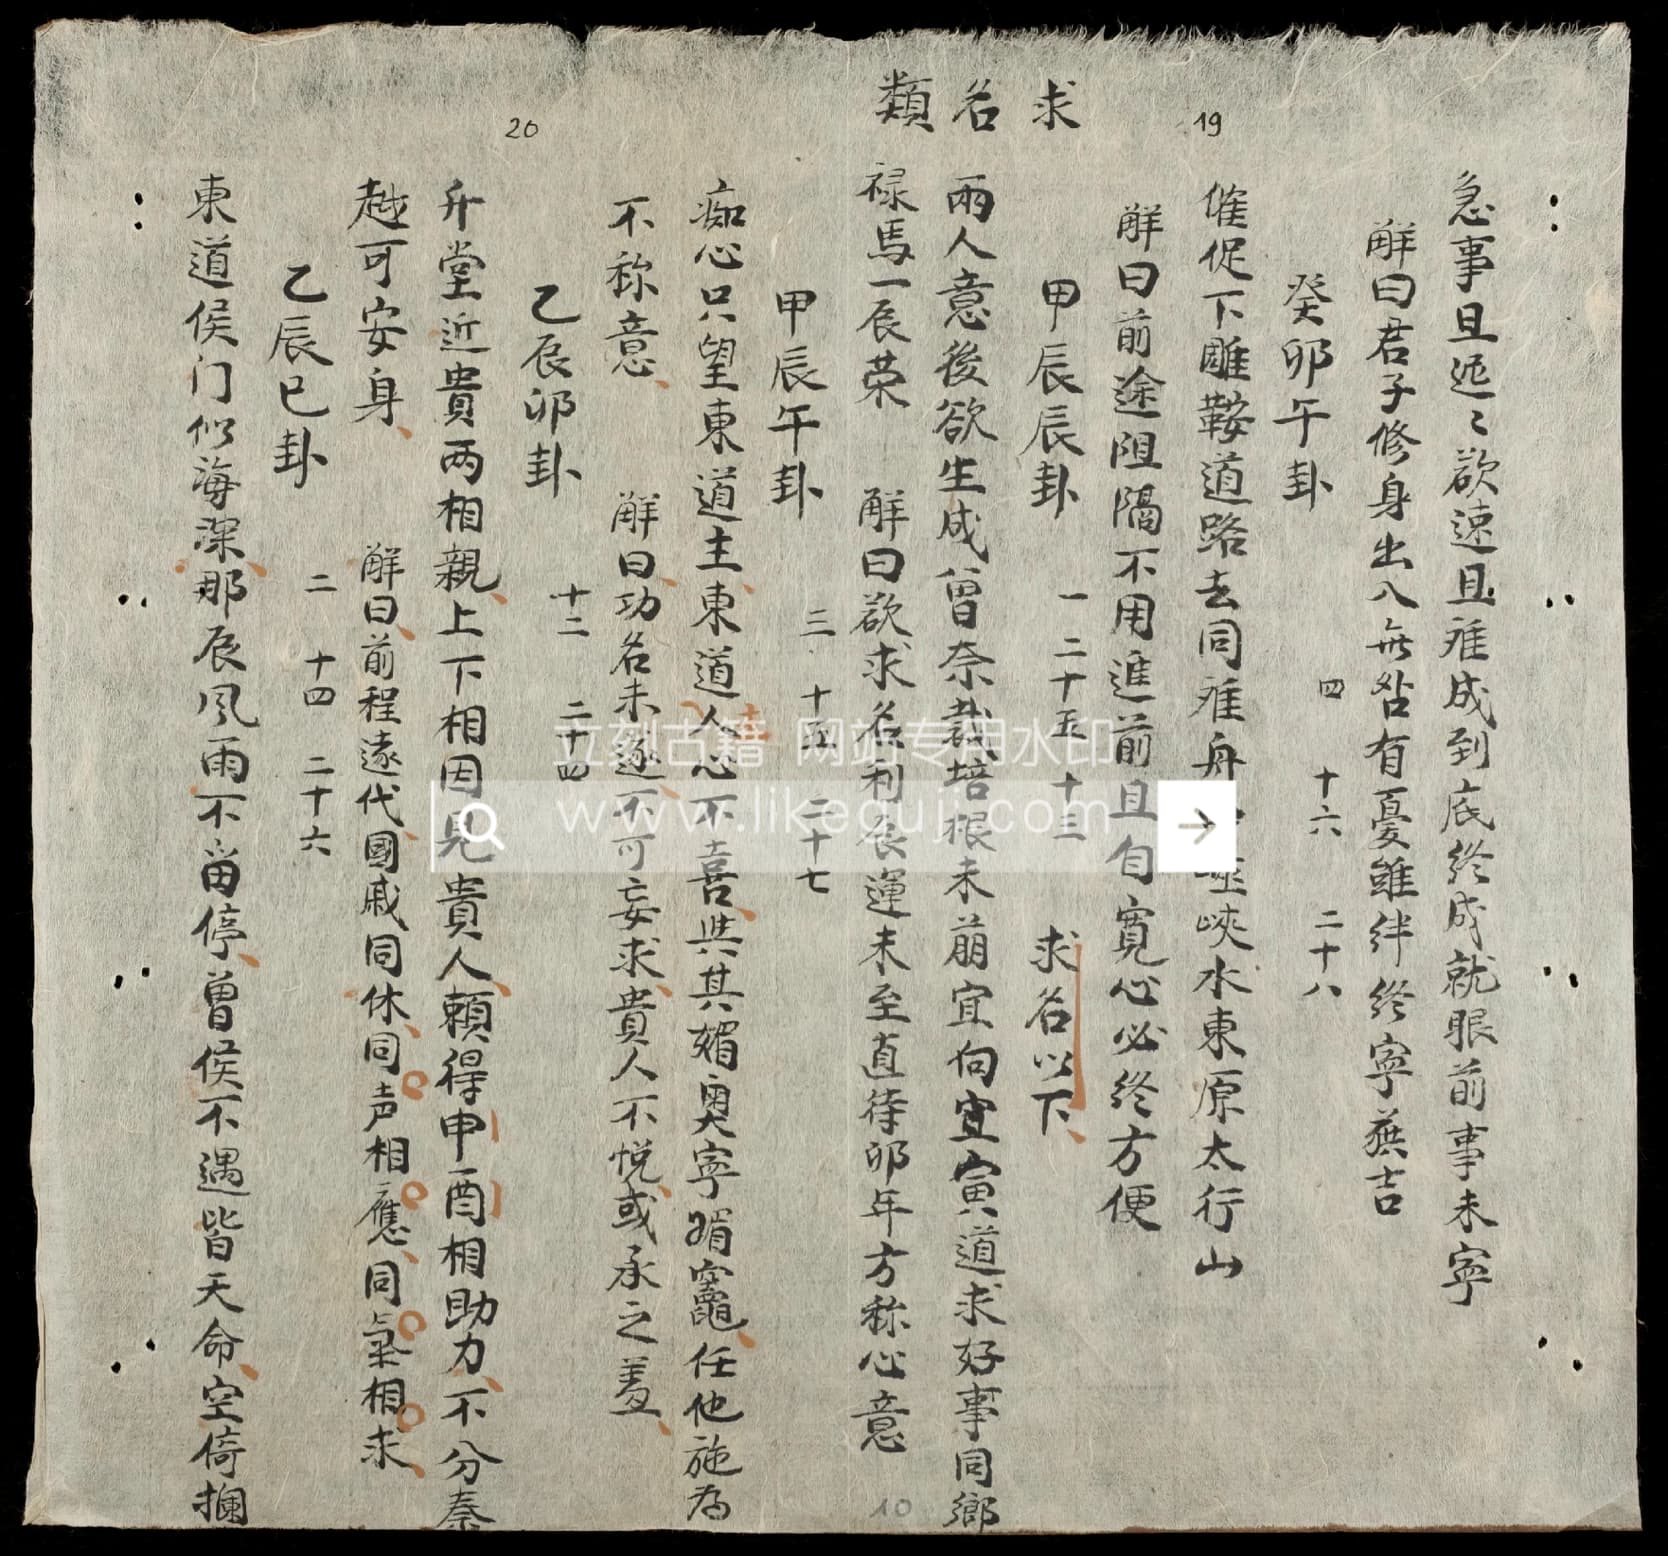 急事且遲〻欲速且难成到底终成就眼前事未寧
解曰君子修身出入無咎有憂雖絆终寧蕪吉
癸卯午卦 四 十六 二十八
催促下雕鞍道路去同难舟 峽水東原太行山
解曰前途阻隔不用進前且自寬心必终方便
19
甲辰辰卦 一 二十五 十三 求名以下
求名類
两人意後欲生成曾奈栽培根未萠宜向宜寅道求好事同鄉
禄馬一辰荣 解曰欲求名利辰運未至直待卯年方称心意
甲辰午卦 三 十五 二十七
痴心只望東道主東道人心不喜與其媚奥寧媚竈任他施为
不称意 解曰功名未遂不可妄求貴人不悦或承之羞
乙辰卯卦 十二 二十四
20
升堂近貴两相親上下相因見貴人賴得申酉相助力不分秦
越可安身 解曰前程遠代國戚同休同声相應同氣相求
乙辰巳卦 二 十四 二十六
東道侯门似海深那辰风雨不畄停曾侯不遇皆天命空倚攔
10
立刻古籍 网站专用水印
www.likeguji.com